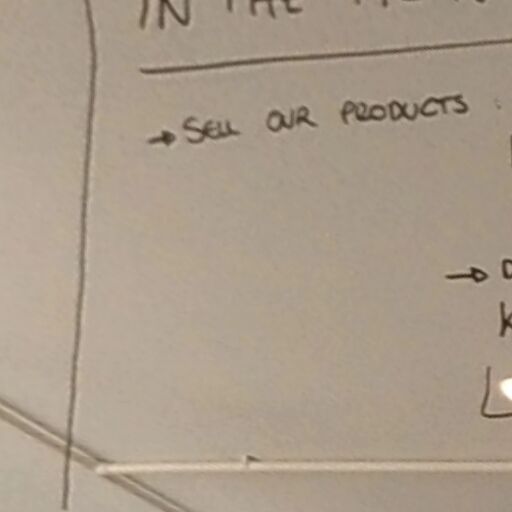 IN THE
→ SELL OUR PRODUCTS :
→